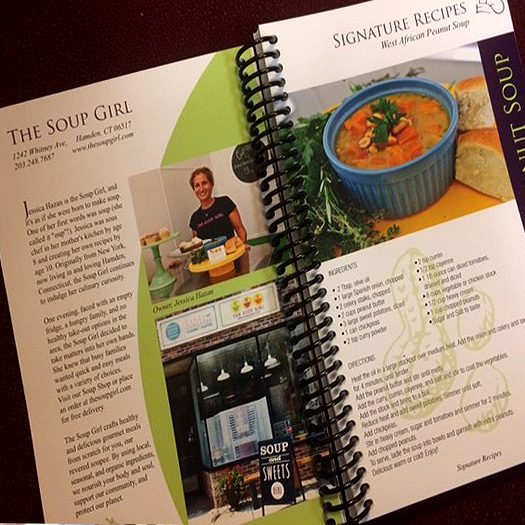 THE SOUP GIRL
1242 Whitney Ave, Hamden, CT 06517
203.248.7687 www.thesoupgirl.com
Jessica Hazan is the Soup Girl, and
it's as if she were born to make soup.
One of her first words was soup (she
called it "oup"!). Jessica was sous
chef in her mother's kitchen by age
8 and creating her own recipes by
age 10. Originally from New York,
now living in and loving Hamden,
Connecticut, the Soup Girl continues
to indulge her culinary curiosity.
One evening, faced with an empty
fridge, a hungry family, and no
healthy take-out options in the
area, the Soup Girl decided to
take matters into her own hands.
She knew that busy families
wanted quick and easy meals
with a variety of choices.
Visit our Soup Shop or place
an order at thesoupgirl.com
for free delivery.
The Soup Girl crafts healthy
and delicious gourmet meals
from scratch for you, our
revered souper. By using local,
seasonal, and organic ingredients,
we nourish your body and soul,
support our community, and
protect our planet.
Owner, Jessica Hazan
THE SOUP GIRL
SOUP
and
SWEETS
SIGNATURE RECIPES
West African Peanut Soup
NUT SOUP
INGREDIENTS
• 2 Tbsp. olive oil
• 1 large Spanish onion, chopped
• 2 celery stalks, chopped
• 2 cups peanut butter
• 3 large sweet potatoes, diced
• 1 can chickpeas
• 2 tsp curry powder
• 2 tsp cumin
• 1/2 tsp cayenne
• 1 16 ounce can tomatoes,
drained and diced
• 8 cups vegetable or chicken stock
• 1/2 cup heavy cream
• 1 cup chopped peanuts
• Sugar and Salt to taste
DIRECTIONS
Heat the oil in a large stockpot over medium heat. Add the onion and celery and
for 4 minutes, until tender.
Add the peanut butter and stir until melty.
Add the curry, cumin, cayenne, and salt and stir to coat the vegetables.
Add the stock and bring to a boil.
Reduce heat and add sweet potatoes. Simmer until soft.
Add chickpeas.
Stir in heavy cream, sugar and tomatoes and simmer for 2 minutes.
Add chopped peanuts.
To serve, ladle the soup into bowls and garnish with extra peanuts.
Delicious warm or cold! Enjoy!
Signature Recipes